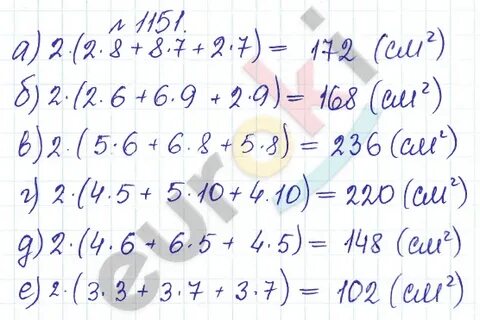 № 1151.
а) 2·(2·8 + 8·7 + 2·7) = 172 (см²)
б) 2·(2·6 + 6·9 + 2·9) = 168 (см²)
в) 2·(5·6 + 6·8 + 5·8) = 236 (см²)
г) 2·(4·5 + 5·10 + 4·10) = 220 (см²)
д) 2·(4·6 + 6·5 + 4·5) = 148 (см²)
е) 2·(3·3 + 3·7 + 3·7) = 102 (см²)
euroki